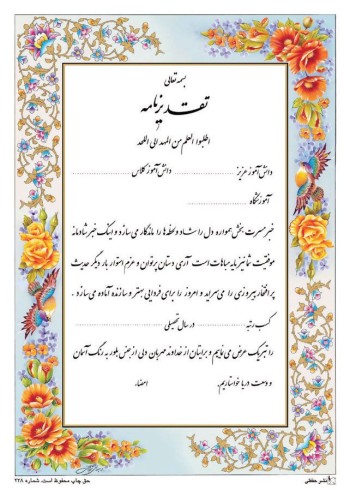 بسمه تعالی
تقدیرنامه
اطلبوا العلم من المهد الی اللحد
دانش‌آموز عزیز ........ دانش‌آموز کلاس ........
آموزشگاه
خبر مسرت بخش همواره دل را شاد و لحظه‌ها را ماندگار می‌سازد و اینک خبر شادمانه
موفقیت شما نیز مایه مباهات است. آری دستان پرتوان و عزم استوار بار دیگر حدیث
پر افتخار پیروزی را می‌سراید و امروز را برای فردایی بهتر و سازنده آماده می‌سازد.
کسب رتبه ........ در سال تحصیلی ........
را تبریک عرض می‌نماییم و برایتان از خداوند مهربان دلی از جنس بلور به رنگ آسمان
و وسعت دریا خواستاریم. امضاء
نشر حافظی
حق چاپ محفوظ است. شماره ۲۲۸